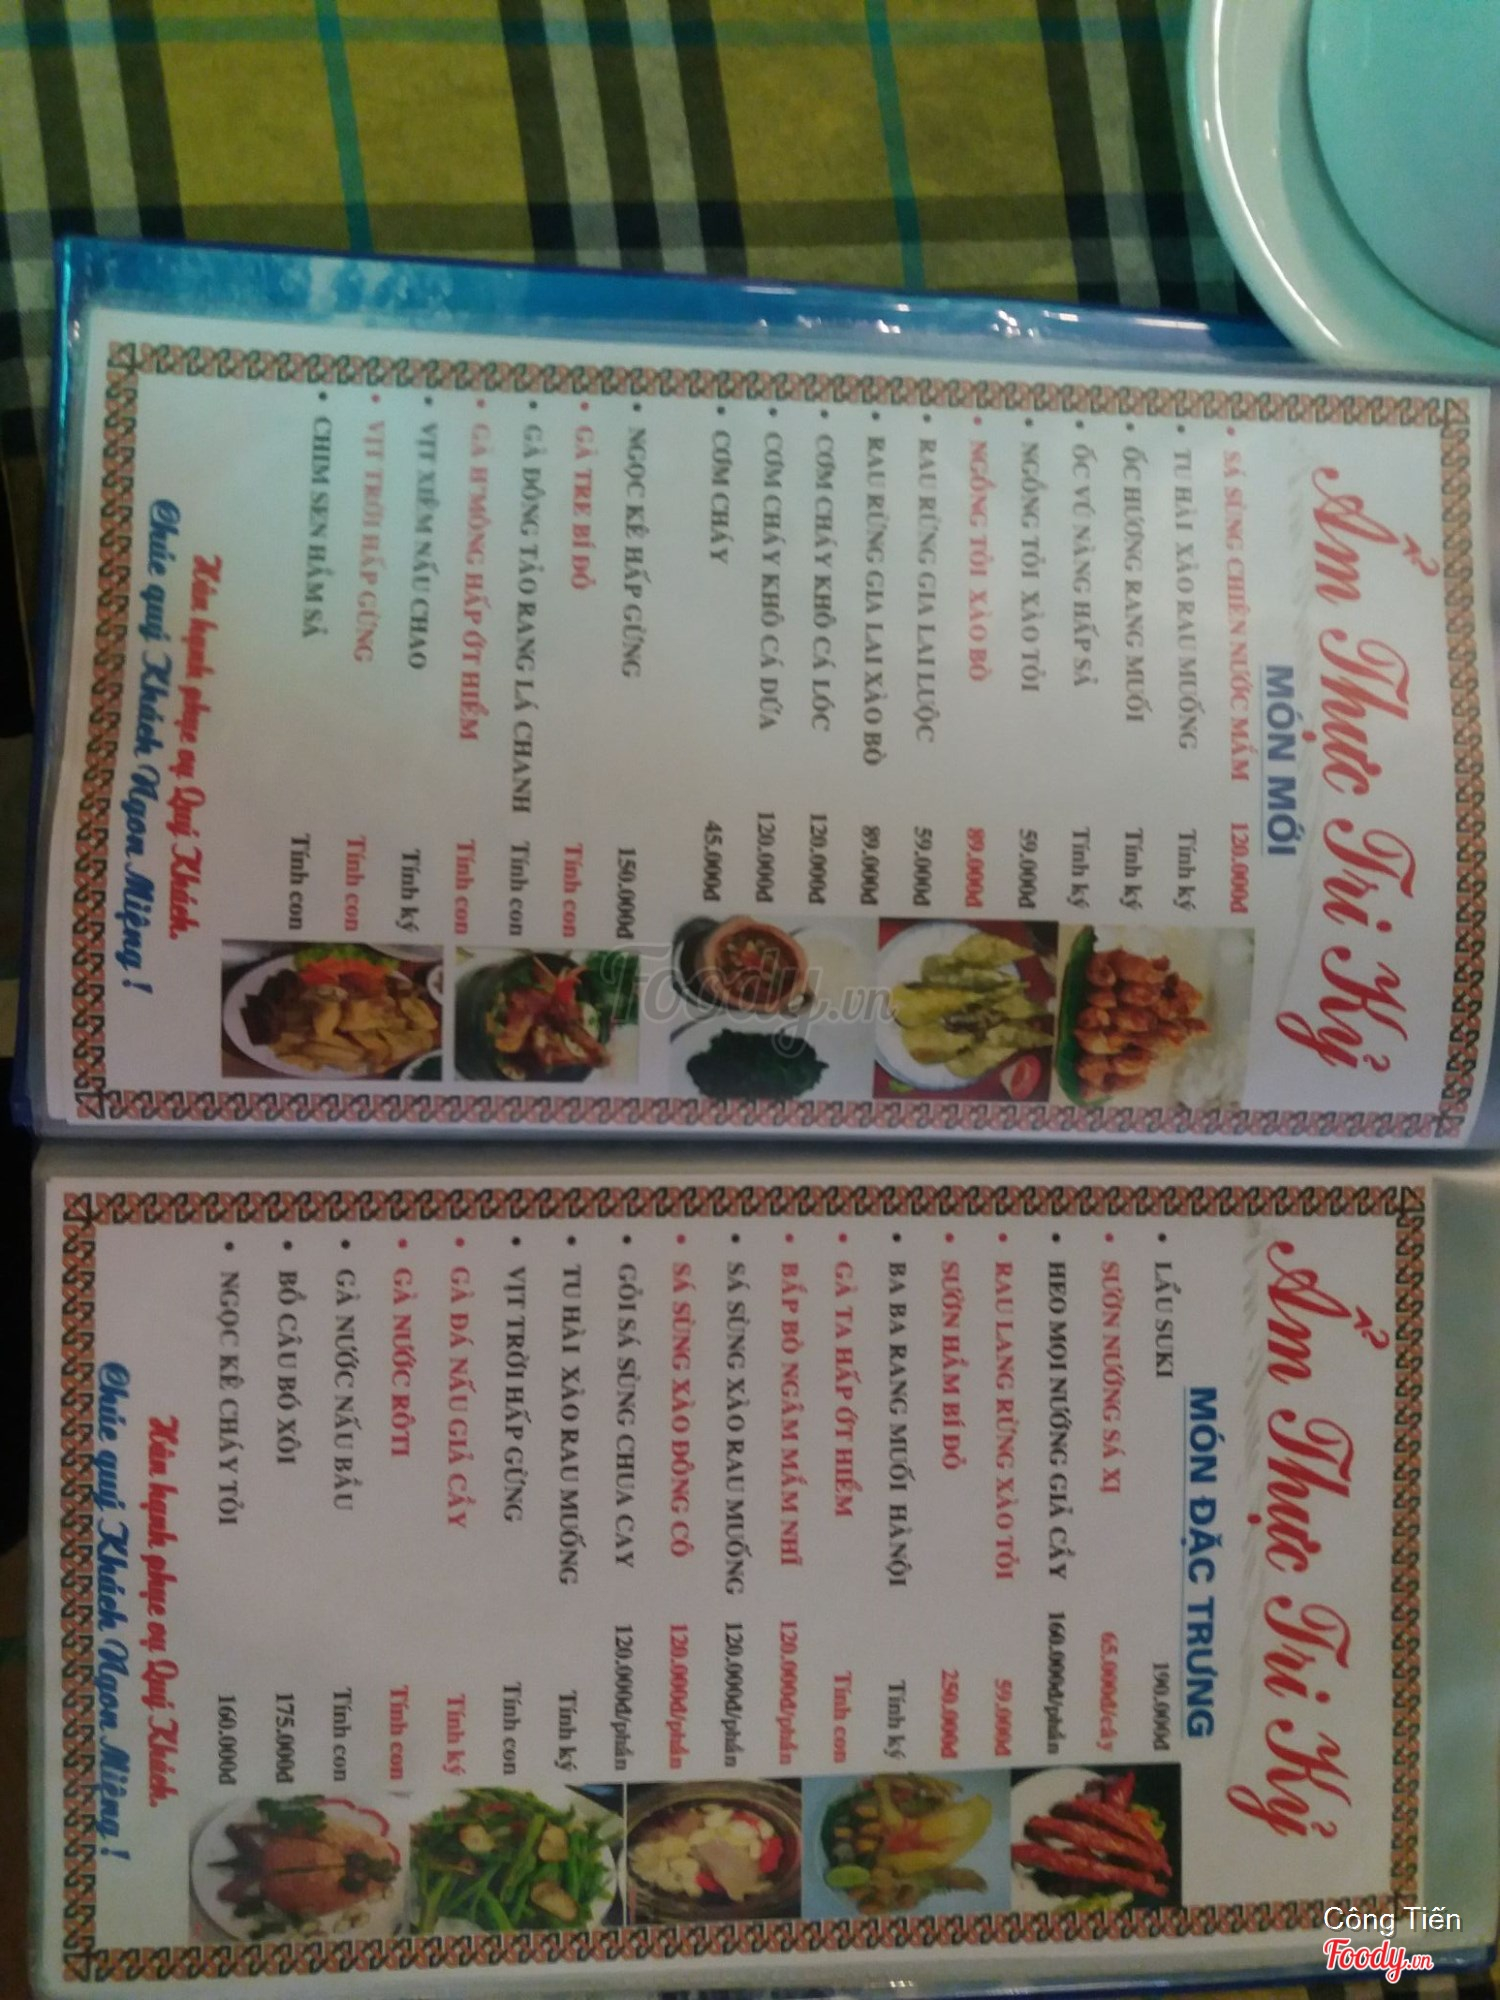 Ẩm Thực Tri Kỷ
MÓN MỚI
• SÁ SÙNG CHIÊN NƯỚC MẮM 120.000đ
• TU HÀI XÀO RAU MUỐNG Tính ký
• ỐC HƯƠNG RANG MUỐI Tính ký
• ỐC VÚ NÀNG HẤP SẢ Tính ký
• NGỒNG TỎI XÀO TỎI 59.000đ
• NGỒNG TỎI XÀO BÒ 89.000đ
• RAU RỪNG GIA LAI LUỘC 59.000đ
• RAU RỪNG GIA LAI XÀO BÒ 89.000đ
• CƠM CHÁY KHÔ CÁ LÓC 120.000đ
• CƠM CHÁY KHÔ CÁ DỨA 120.000đ
• CƠM CHÁY 45.000đ
• NGỌC KÊ HẤP GỪNG 150.000đ
• GÀ TRE BÍ ĐỎ Tính con
• GÀ ĐÔNG TẢO RANG LÁ CHANH Tính con
• GÀ H'MÔNG HẤP ỚT HIỂM Tính con
• VỊT XIÊM NẤU CHAO Tính ký
• VỊT TRỜI HẤP GỪNG Tính con
• CHIM SEN HẦM SẢ Tính con
Hân hạnh phục vụ Quý Khách.
Chúc quý Khách Ngon Miệng !
Ẩm Thực Tri Kỷ
MÓN ĐẶC TRƯNG
• LẨU SUKI 190.000đ
• SƯỜN NƯỚNG SÁ XỊ 65.000đ/cây
• HEO MỌI NƯỚNG GIẢ CẦY 160.000đ/phần
• RAU LANG RỪNG XÀO TỎI 59.000đ
• SƯỜN HẦM BÍ ĐỎ 250.000đ
• BA BA RANG MUỐI HÀ NỘI Tính ký
• GÀ TA HẤP ỚT HIỂM Tính con
• BẮP BÒ NGÂM MẮM NHĨ 120.000đ/phần
• SÁ SÙNG XÀO RAU MUỐNG 120.000đ/phần
• SÁ SÙNG XÀO ĐÔNG CÔ 120.000đ/phần
• GỎI SÁ SÙNG CHUA CAY 120.000đ/phần
• TU HÀI XÀO RAU MUỐNG Tính ký
• VỊT TRỜI HẤP GỪNG Tính con
• GÀ ĐÁ NẤU GIẢ CẦY Tính ký
• GÀ NƯỚC RÔTI Tính con
• GÀ NƯỚC NẤU BẦU Tính con
• BỒ CÂU BÓ XÔI 175.000đ
• NGỌC KÊ CHÁY TỎI 160.000đ
Hân hạnh phục vụ Quý Khách.
Chúc quý Khách Ngon Miệng !
Foody.vn
Công Tiến
Foody.vn